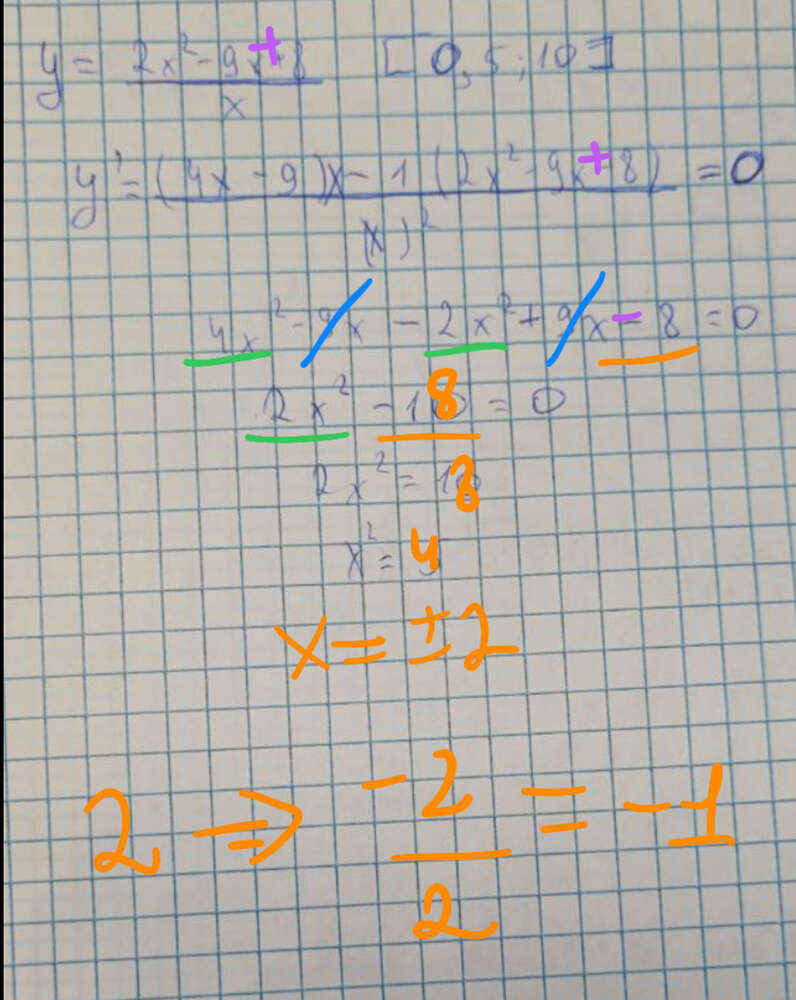 y = (2x² - 9x + 8) / x [0,5; 10]
y' = ((4x - 9)x - 1(2x² - 9x + 8)) / (x)² = 0
4x² - 9x - 2x² + 9x - 8 = 0
2x² - 8 = 0
2x² = 8
x² = 4
x = ±2
2 ⇒ -2 / 2 = -1